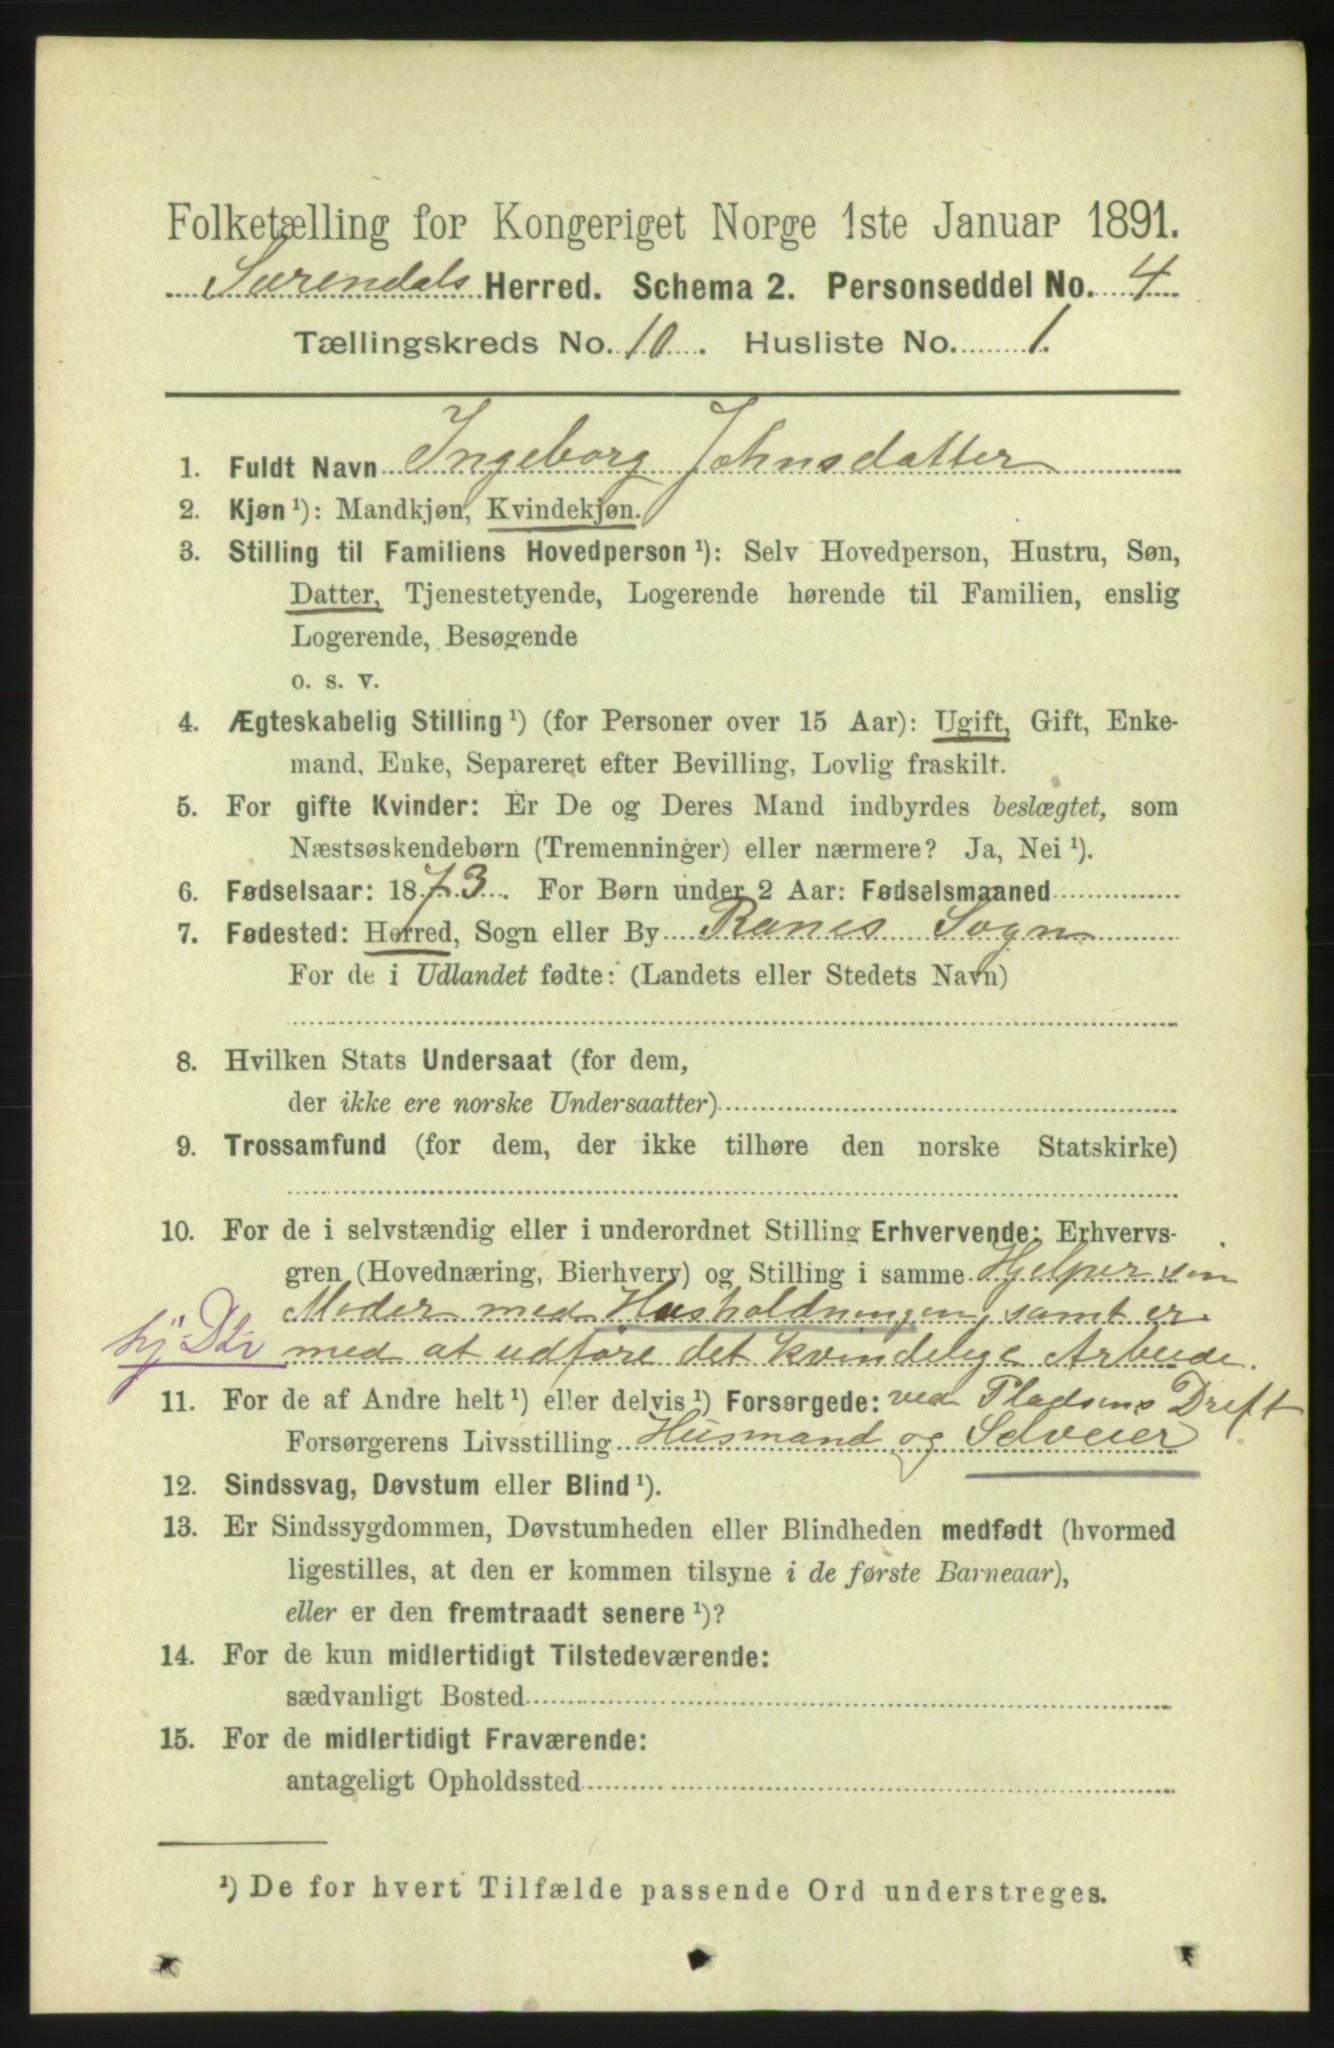 Folketælling for Kongeriget Norge 1ste Januar 1891.
Surendals Herred. Schema 2. Personseddel No. 4
Tællingskreds No. 10. Husliste No. 1.
1. Fuldt Navn Ingeborg Johnsdatter
2. Kjøn ¹): Mandkjøn, Kvindekjøn.
3. Stilling til Familiens Hovedperson ¹): Selv Hovedperson, Hustru, Søn,
Datter, Tjenestetyende, Logerende hørende til Familien, enslig
Logerende, Besøgende
o. s. v.
4. Ægteskabelig Stilling ¹) (for Personer over 15 Aar): Ugift, Gift, Enke-
mand, Enke, Separeret efter Bevilling, Lovlig fraskilt.
5. For gifte Kvinder: Er De og Deres Mand indbyrdes beslægtet, som
Næstsøskendebørn (Tremenninger) eller nærmere? Ja, Nei ¹).
6. Fødselsaar: 1873. For Børn under 2 Aar: Fødselsmaaned
7. Fødested: Herred, Sogn eller By Ranes Sogn
For de i Udlandet fødte: (Landets eller Stedets Navn)
8. Hvilken Stats Undersaat (for dem,
der ikke ere norske Undersaatter)
9. Trossamfund (for dem, der ikke tilhøre den norske Statskirke)
10. For de i selvstændig eller i underordnet Stilling Erhvervende: Erhvervs-
gren (Hovednæring, Bierhverv) og Stilling i samme Hjelper sin
Moder med Husholdningen, samt er
hj Dtr med at udføre det kvindelige Arbeide
11. For de af Andre helt ¹) eller delvis ¹) Forsørgede: ved Pladsens Drift
Forsørgerens Livsstilling Husmand og Selveier
12. Sindssvag, Døvstum eller Blind ¹).
13. Er Sindssygdommen, Døvstumheden eller Blindheden medfødt (hvormed
ligestilles, at den er kommen tilsyne i de første Barneaar),
eller er den fremtraadt senere ¹)?
14. For de kun midlertidigt Tilstedeværende:
sædvanligt Bosted
15. For de midlertidigt Fraværende:
antageligt Opholdssted
¹) De for hvert Tilfælde passende Ord understreges.